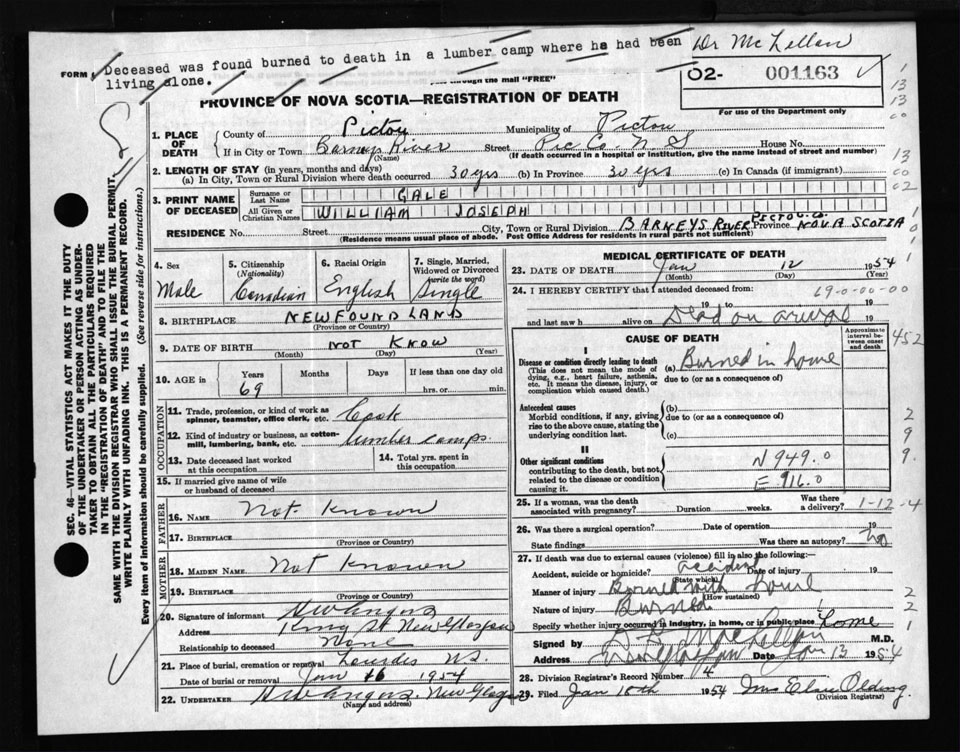 Deceased was found burned to death in a lumber camp where he had been
living alone.
Dr McLellan
FORM
through the mail "FREE"
O2- 001163
For use of the Department only
PROVINCE OF NOVA SCOTIA—REGISTRATION OF DEATH
1. PLACE OF DEATH
County of Pictou Municipality of Pictou
If in City or Town Barneys River Street Pic Co. N S House No.
(Name) (If death occurred in a hospital or institution, give the name instead of street and number)
2. LENGTH OF STAY (in years, months and days)
(a) In City, Town or Rural Division where death occurred 30 yrs (b) In Province 30 yrs (c) In Canada (if immigrant)
3. PRINT NAME OF DECEASED
Surname or Last Name GALE
All Given or Christian Names WILLIAM JOSEPH
RESIDENCE No. Street City, Town or Rural Division BARNEYS RIVER PICTOU. CO. Province NOVA SCOTIA
(Residence means usual place of abode. Post Office Address for residents in rural parts not sufficient)
4. Sex
Male
5. Citizenship (Nationality)
Canadian
6. Racial Origin
English
7. Single, Married, Widowed or Divorced (write the word)
Single
8. BIRTHPLACE NEWFOUNDLAND
(Province or Country)
9. DATE OF BIRTH NOT KNOW
(Month) (Day) (Year)
10. AGE in Years Months Days If less than one day old
69 hrs. or min.
OCCUPATION
11. Trade, profession, or kind of work as spinner, teamster, office clerk, etc. Cook
12. Kind of industry or business, as cotton-mill, lumbering, bank, etc. lumber camps.
13. Date deceased last worked at this occupation
14. Total yrs. spent in this occupation
15. If married give name of wife or husband of deceased
FATHER
16. NAME Not Known
17. BIRTHPLACE
(Province or Country)
MOTHER
18. MAIDEN NAME Not Known
19. BIRTHPLACE
(Province or Country)
20. Signature of informant
Address King St New Glasgow
Relationship to deceased None
21. Place of burial, cremation or removal Lourdes N.S.
Date of burial or removal Jan 16 1954
22. UNDERTAKER New Glasgow
(Name and address)
MEDICAL CERTIFICATE OF DEATH
23. DATE OF DEATH Jan 12 1954
(Month) (Day) (Year)
24. I HEREBY CERTIFY that I attended deceased from: 69-0-00-00
19 to 19
and last saw h alive on Dead on arrival 19
CAUSE OF DEATH
Approximate interval between onset and death
I
Disease or condition directly leading to death
(This does not mean the mode of dying, e.g., heart failure, asthenia, etc. It means the disease, injury, or complication which caused death.)
(a) Burned in home
due to (or as a consequence of)
Antecedent causes
Morbid conditions, if any, giving rise to the above cause, stating the underlying condition last.
(b)
due to (or as a consequence of)
(c)
II
Other significant conditions
contributing to the death, but not related to the disease or condition causing it.
N 949.0
E 916.0
25. If a woman, was the death associated with pregnancy? Duration weeks. Was there a delivery? 1-12-4
26. Was there a surgical operation? Date of operation 19
State findings Was there an autopsy? no
27. If death was due to external causes (violence) fill in also the following:
Accident, suicide or homicide? accident Date of injury 19
(State which)
Manner of injury Burned with home
(How sustained)
Nature of injury Burned
Specify whether injury occurred in industry, in home, or in public place home
Signed by M.D.
Address Date Jan 13 1954
28. Division Registrar's Record Number 4
29. Filed Jan 18th 1954 Mrs Elsie Olding
(Division Registrar)
SEC. 46—VITAL STATISTICS ACT MAKES IT THE DUTY
OF THE UNDERTAKER OR PERSON ACTING AS UNDER-
TAKER TO OBTAIN ALL THE PARTICULARS REQUIRED
IN THE "REGISTRATION OF DEATH" AND TO FILE THE
SAME WITH THE DIVISION REGISTRAR WHO SHALL ISSUE THE BURIAL PERMIT.
WRITE PLAINLY WITH UNFADING INK. THIS IS A PERMANENT RECORD.
Every item of information should be carefully supplied. (See reverse side for instructions.)
1
13
13
00
13
00
02
1
0
1
452
2
9
9
2
2
1